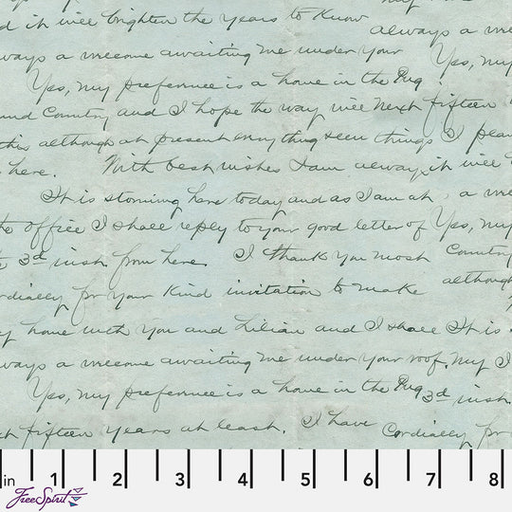 d it will brighten the years to know always a we
ways a welcome awaiting me under your Yes, my
Yes, my preference is a home in the
and Country and I hope the way will next fifteen
this although at present everything seem things I plan
here. With best wishes I am always, it will
It is storming here today and as I am at a we
the office I shall reply to your good letter of Yes, my
3d inst from here. I thank you most Country
rdially for your kind invitation to make although
y home with you and Lilian and I shall It is
ways a welcome awaiting me under your roof. My I
Yes, my preference is a home in the 3d inst.
fifteen years at least. I have Cordially for
in 1 2 3 4 5 6 7 8
FreeSpirit